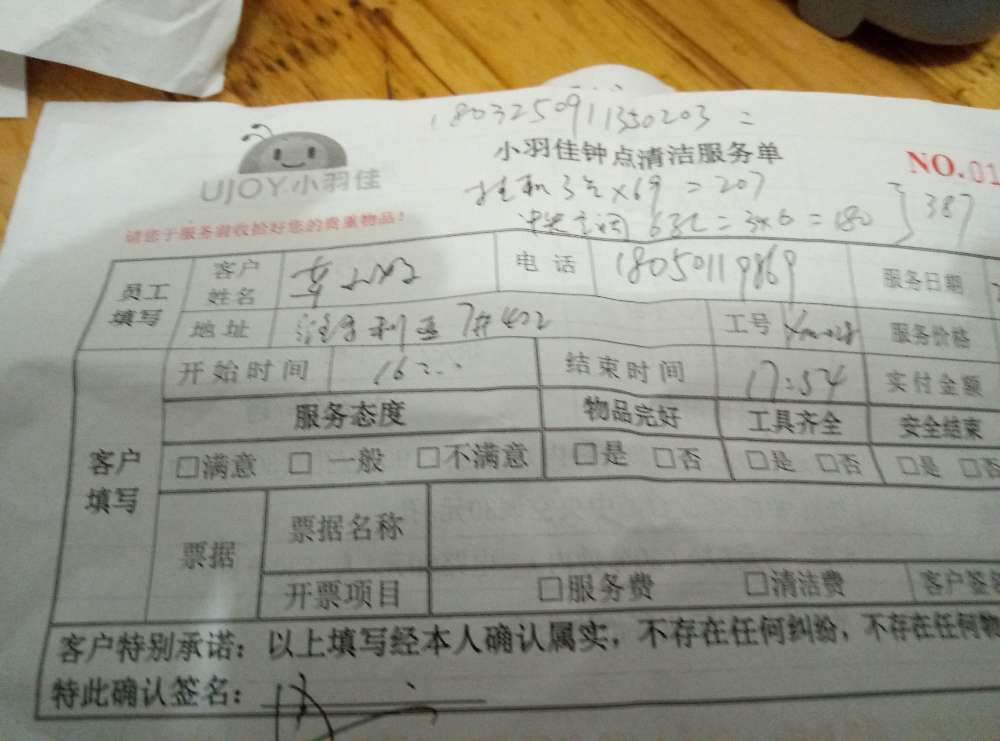 1803250911350203 =
小羽佳钟点清洁服务单
NO.01
UJOY小羽佳
挂机 3台×69 = 207
中央空调 = 3×6 = 180 } 387
请您于服务前收拾好您的贵重物品！
员工填写
客户姓名
电话 18050119869
服务日期
地址 7#402
工号
服务价格
客户填写
开始时间 16
结束时间 17:54
实付金额
服务态度 物品完好 工具齐全 安全结束
□满意 □一般 □不满意 □是 □否 □是 □否 □是 □否
票据
票据名称
开票项目 □服务费 □清洁费 客户签
客户特别承诺：以上填写经本人确认属实，不存在任何纠纷，不存在任何物
特此确认签名：